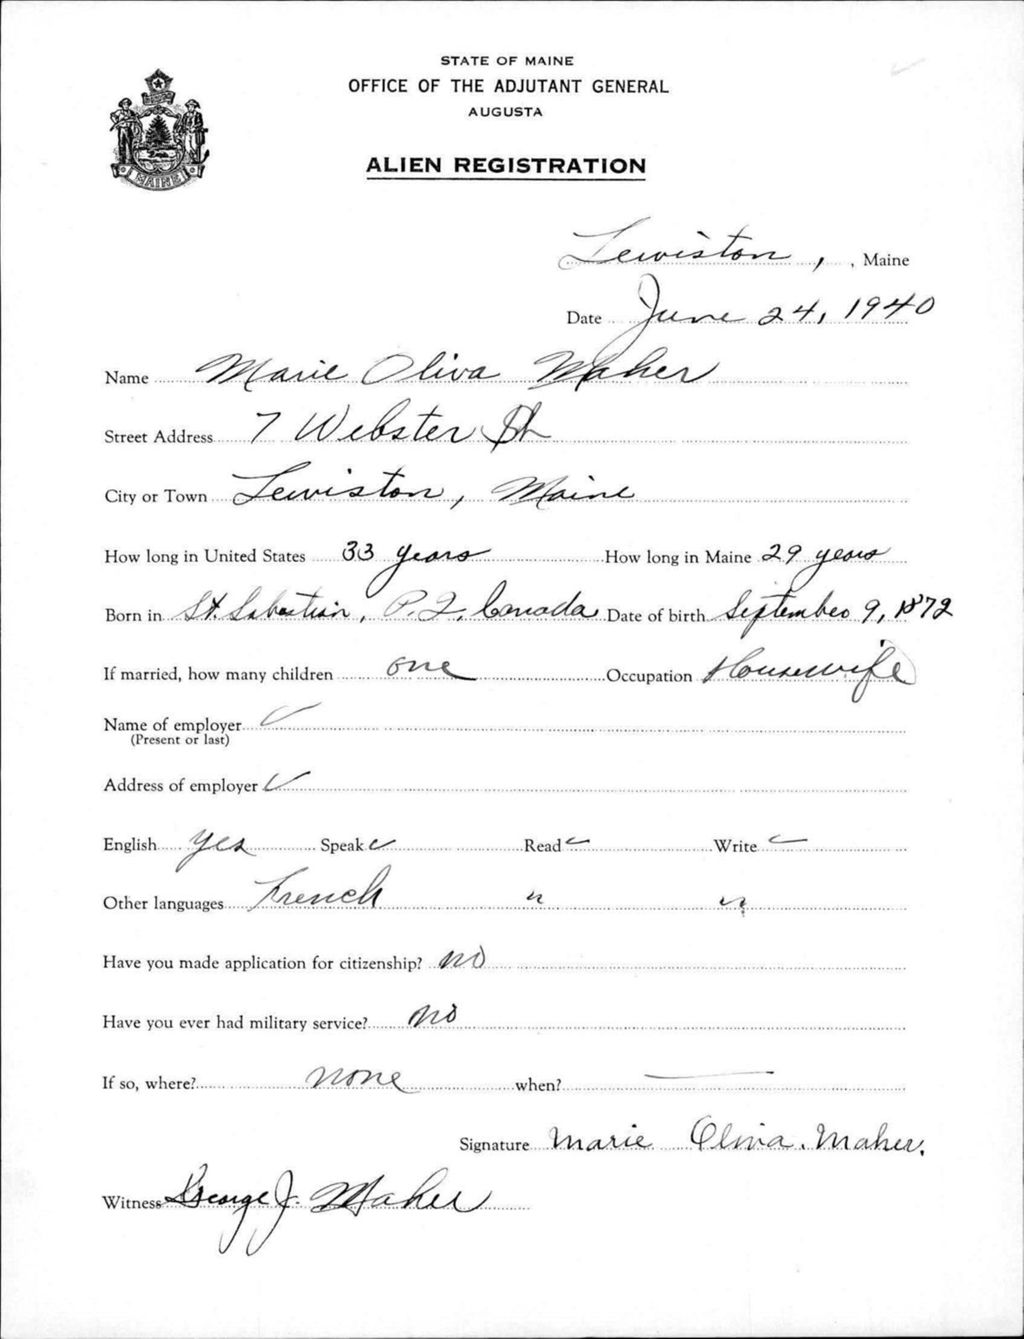 STATE OF MAINE
OFFICE OF THE ADJUTANT GENERAL
AUGUSTA
ALIEN REGISTRATION
MAINE
Lewiston, , Maine
Date June 24, 1940
Name Marie Oliva Maher
Street Address 7 Webster St
City or Town Lewiston, Maine
How long in United States 33 years How long in Maine 29 years
Born in St. Sabastian, P.Q. Canada Date of birth September 9, 1872
If married, how many children one Occupation Housewife
Name of employer
(Present or last)
Address of employer
English yes Speak Read Write
Other languages French " "
Have you made application for citizenship? no
Have you ever had military service? no
If so, where? none when? —
Signature Marie Oliva Maher.
Witness George J. Maher